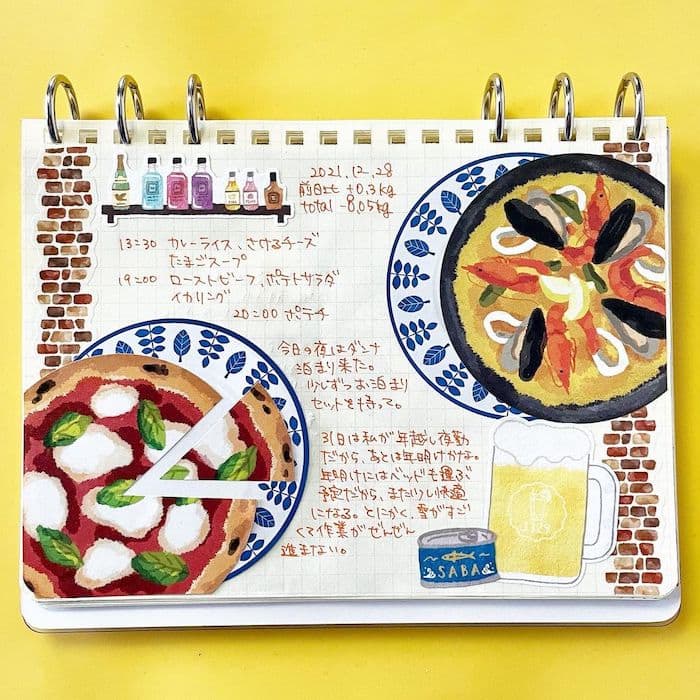 2021.12.28
前日比 ±0.3kg
total -8.05kg
13:30 カレーライス、さけるチーズ
たまごスープ
19:00 ローストビーフ、ポテトサラダ
イカリング
20:00 ポテチ
今日の夜はダンナ
泊まり来た。
少しずつお泊まり
セットを持って。
31日は私が年越し夜勤
だから、あとは年明けかな。
年明けにはベッドも運ぶ
予定だから、またりし快適
になる。とにかく、雪がすご
くて作業がぜんぜん
進まない。
SABA